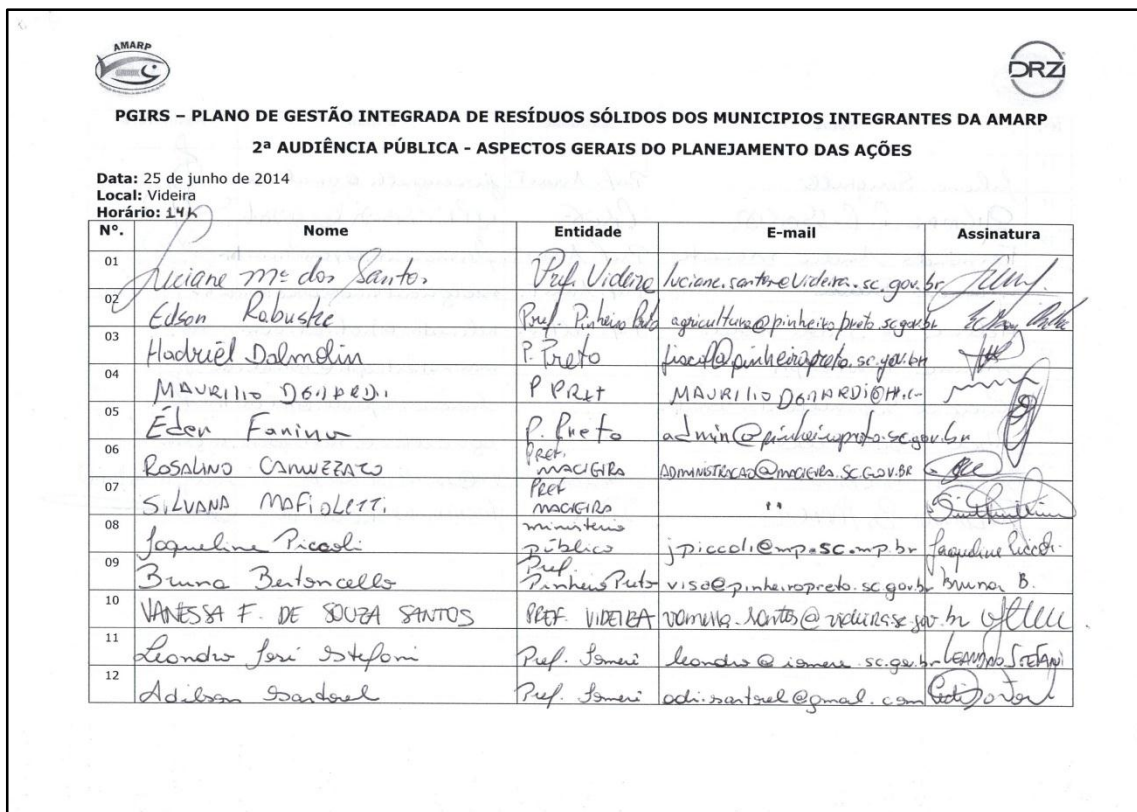 AMARP
DRZ
PGIRS – PLANO DE GESTÃO INTEGRADA DE RESÍDUOS SÓLIDOS DOS MUNICIPIOS INTEGRANTES DA AMARP
2ª AUDIÊNCIA PÚBLICA - ASPECTOS GERAIS DO PLANEJAMENTO DAS AÇÕES
Data: 25 de junho de 2014
Local: Videira
Horário: 14h
Nº. Nome Entidade E-mail Assinatura
01 Luciane Mª dos Santos Pref. Videira luciane.santos@videira.sc.gov.br
02 Edson Rabuske Pref. Pinheiro Preto agricultura@pinheiropreto.sc.gov.br
03 Hadriel Dalmolin P. Preto fiscal@pinheiropreto.sc.gov.br
04 MAURILIO P PRET
05 Éden P. Preto admin@pinheiropreto.sc.gov.br
06 ROSALINO Pref. MACIEIRA ADMINISTRACAO@MACIEIRA.SC.GOV.BR
07 SILVANA MAFIOLETTI Pref MACIEIRA "
08 Jaqueline Piccoli ministério público jpiccoli@mp.sc.mp.br Jaqueline Piccoli
09 Bruna Bertoncello Pref. Pinheiro Preto visa@pinheiropreto.sc.gov.br Bruna B.
10 VANESSA F. DE SOUZA SANTOS PREF. VIDEIRA
11 Leandro José Stefani Pref. Iomerê leandro@iomere.sc.gov.br LEANDRO STEFANI
12 Adilson Sartorel Pref. Iomerê adi.sartorel@gmail.com